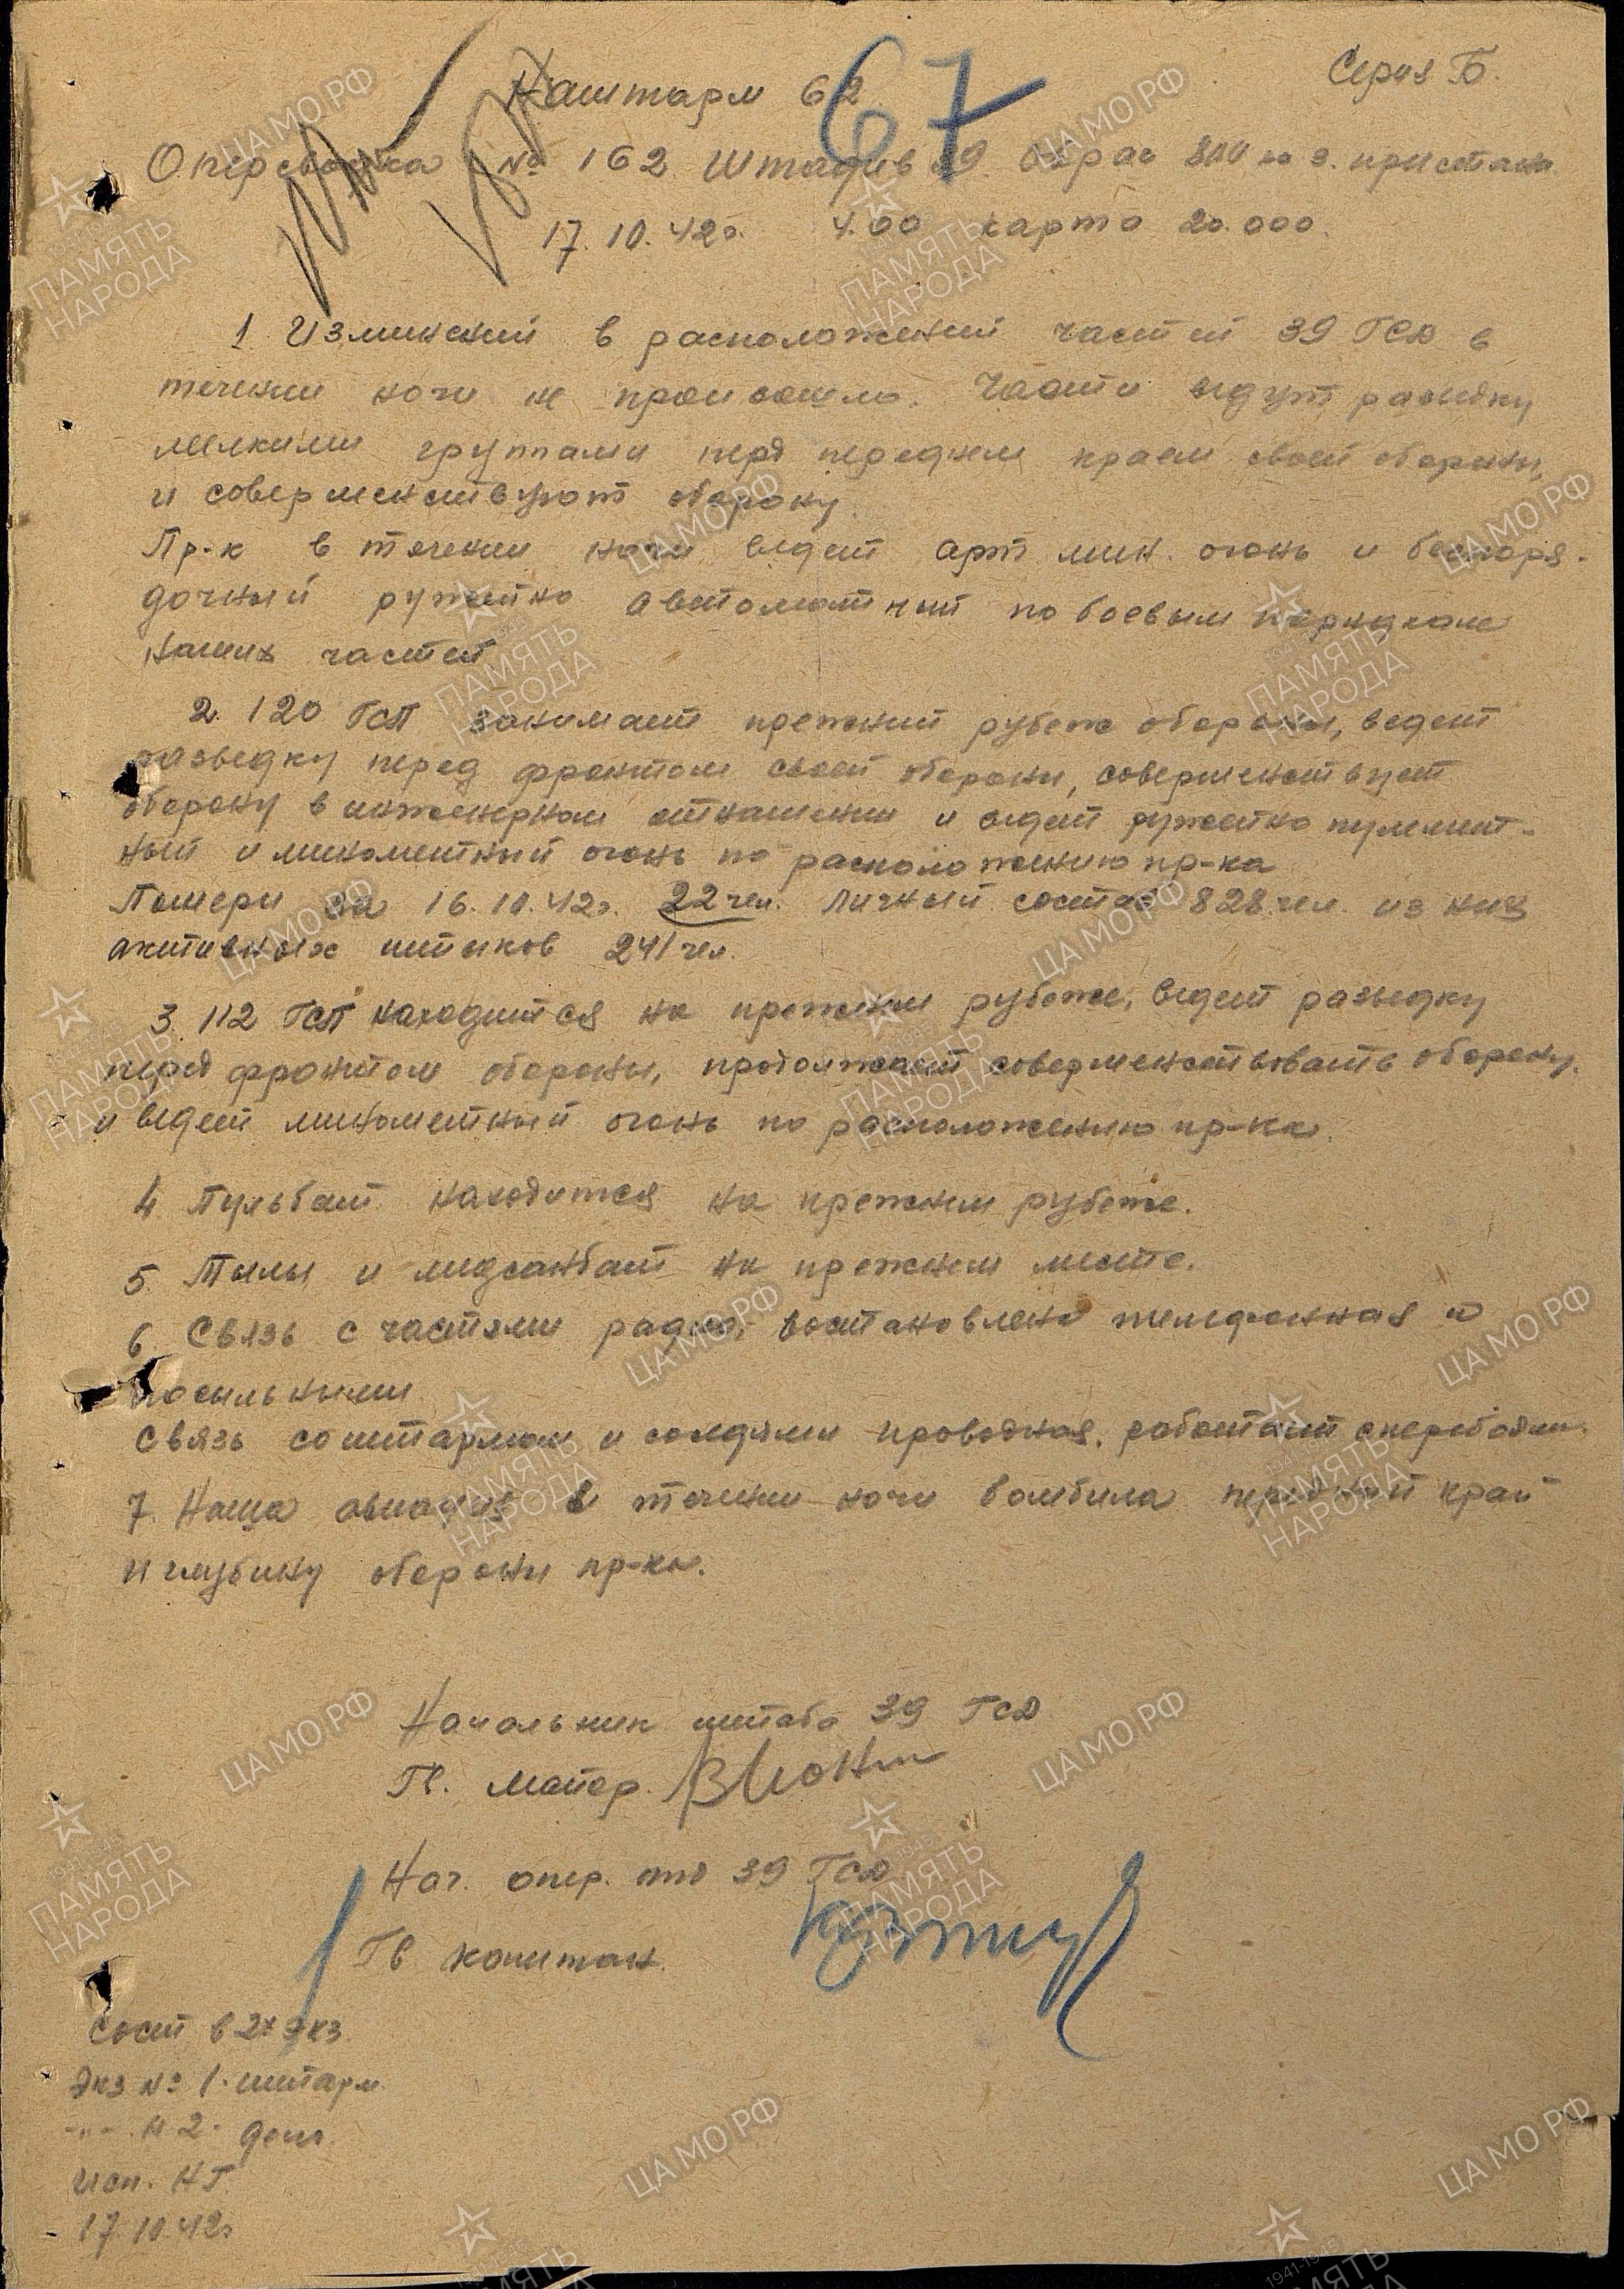 Серия Б.
Наштарм 62
67
Оперсводка № 162 Штадив 39. Овраг 800 м з. пристань
17.10.42г. 4.00 карта 20.000.
1. Изминений в расположений частей 39 ГСД в
течении ночи не произошло. Части ведут разведку
мелкими группами перед передним краем своей обороны,
и совершенствуют оборону.
Пр-к в течении ночи ведет арт мин. огонь и беспоря-
дочный ружейно автоматный по боевым порядкам
наших частей
2. 120 ГСП занимает прежний рубеж обороны, ведет
разведку перед фронтом своей обороны, совершенствует
оборону в инженерном отношении и ведет ружейно пулемет-
ный и минометный огонь по расположению пр-ка
Потери за 16.10.42г. 22 чел. Личный состав 828 чел. из них
активных штыков 241 чел.
3. 112 ГСП находится на прежнем рубеже, ведет разведку
перед фронтом обороны, продолжает совершенствовать оборону.
и ведет минометный огонь по расположению пр-ка.
4 Пульбат находится на прежнем рубеже.
5. Тылы и медсанбат на прежнем месте.
6 Связь с частями радио, востановлена телефонная и
посыльными.
Связь со штармом и соседями проводная. работает с перебоями.
7. Наша авиация в течении ночи бомбила передний край
и глубину обороны пр-ка.
Начальник штаба 39 ГСД
Гв. Майор.
Нач. опер. отд 39 ГСД
Гв капитан.
Сост в 2х экз.
Экз № 1. штарм.
-"- № 2. дело.
Исп. НГ.
17.10.42г
ЦАМО РФ
ПАМЯТЬ НАРОДА
1941-1945